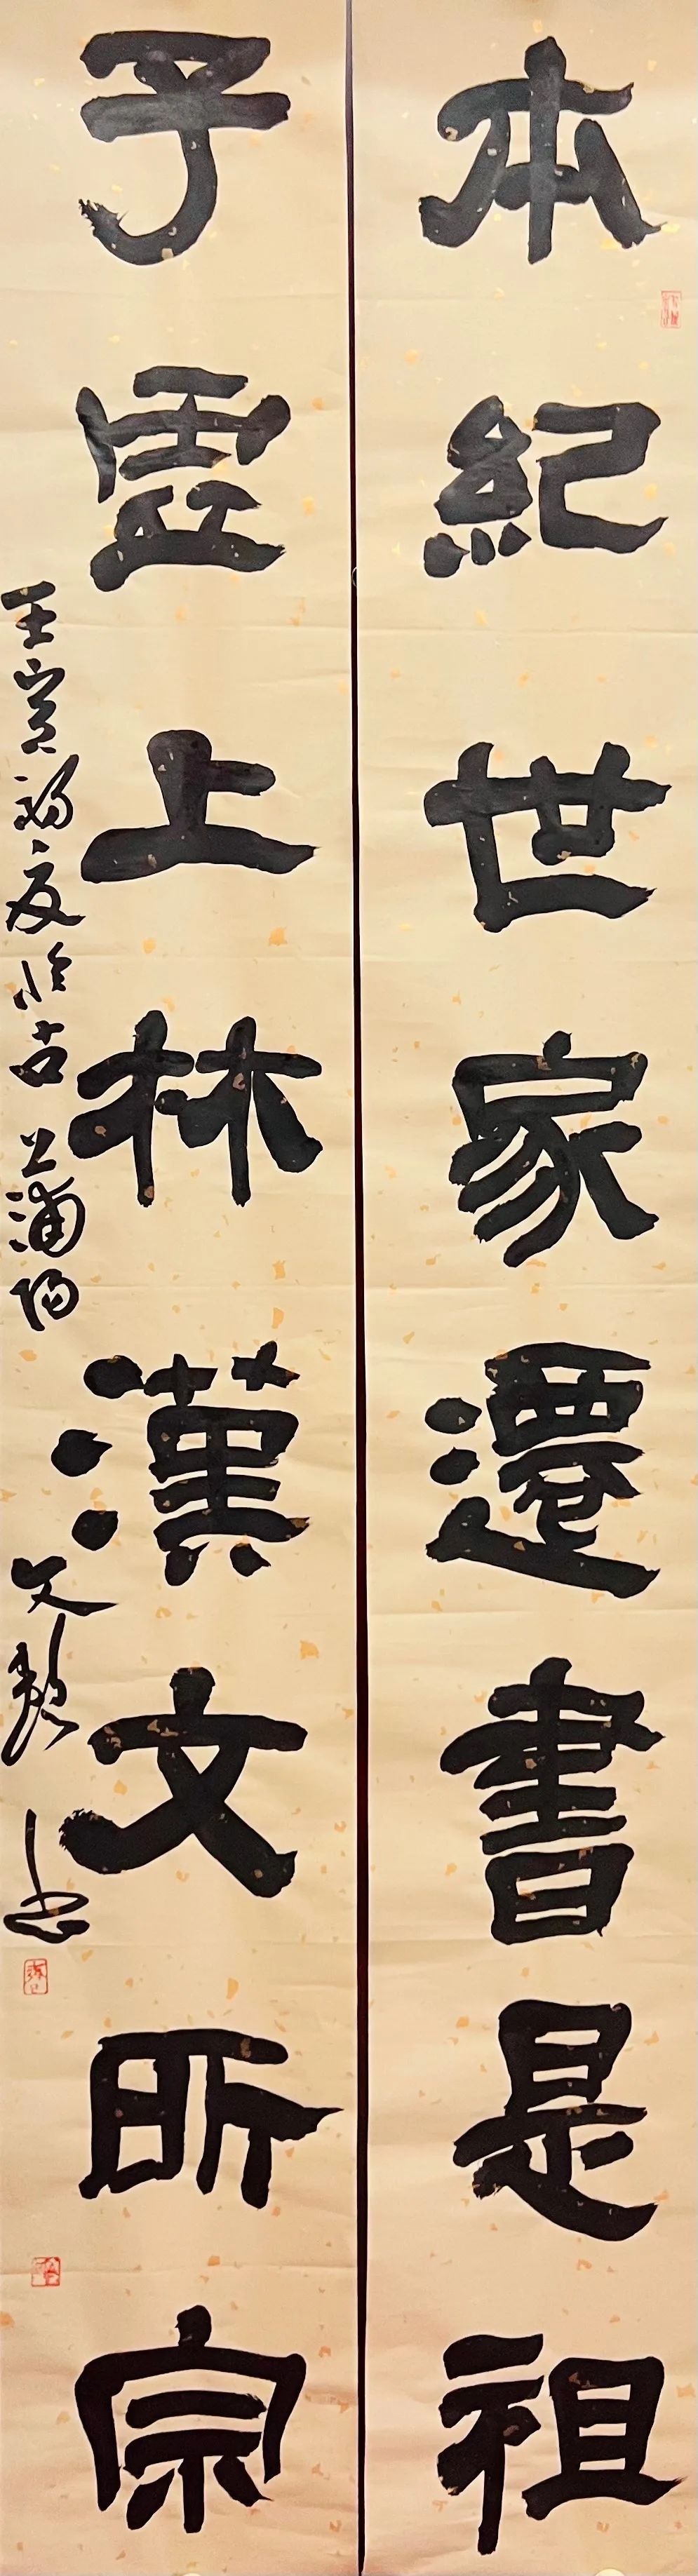 本紀世家遷書是祖
子虛上林漢文所宗
壬寅初夏於古蒲陽 文 書